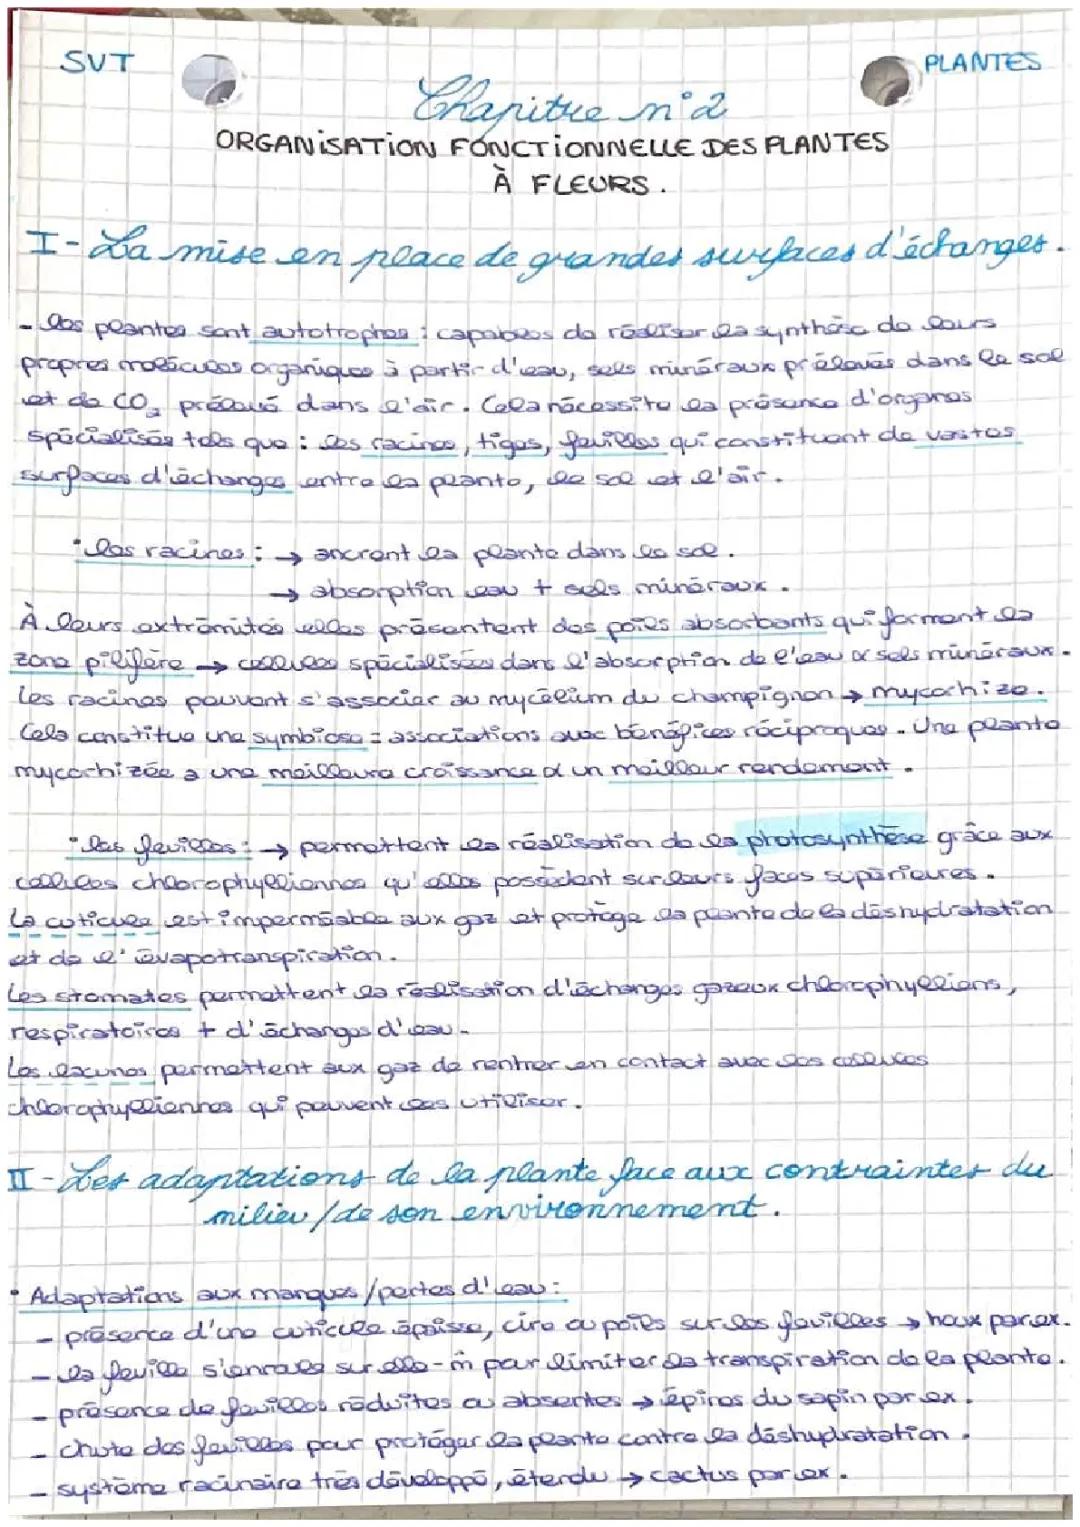 SVT
PLANTES
Chapitre n°2
ORGANISATION FONCTIONNELLE DES PLANTES
À FLEURS.
I - La mise en place de grandes surfaces d'échanges.
- les plantes sont autotrophes : capables de réaliser la synthèse de leurs
propres molécules organiques à partir d'eau, sels minéraux prélevés dans le sol
et de CO₂ prélevé dans l'air. Cela nécessite la présence d'organes
spécialisés tels que : les racines, tiges, feuilles qui constituent de vastes
surfaces d'échanges entre la plante, le sol et l'air.
• les racines : → ancrent la plante dans le sol.
→ absorption eau + sels minéraux.
À leurs extrémités elles présentent des poils absorbants qui forment la
zone pilifère → cellules spécialisées dans l'absorption de l'eau & sels minéraux.
Les racines peuvent s'associer au mycélium du champignon → mycorhize.
Cela constitue une symbiose = associations avec bénéfices réciproques. Une plante
mycorhizée a une meilleure croissance & un meilleur rendement.
• les feuilles : → permettent la réalisation de la photosynthèse grâce aux
cellules chlorophylliennes qu'elles possèdent sur leurs faces supérieures.
La cuticule est imperméable aux gaz et protège la plante de la déshydratation
et de l'évapotranspiration.
Les stomates permettent la réalisation d'échanges gazeux chlorophylliens,
respiratoires + d'échanges d'eau.
Les lacunes permettent aux gaz de rentrer en contact avec les cellules
chlorophylliennes qui peuvent les utiliser.
II - Les adaptations de la plante face aux contraintes du
milieu / de son environnement.
• Adaptations aux manques / pertes d'eau :
- présence d'une cuticule épaisse, cire ou poils sur les feuilles → houx par ex.
- la feuille s'enroule sur elle-m̂ pour limiter la transpiration de la plante.
- présence de feuilles réduites ou absentes → épines du sapin par ex.
- chute des feuilles pour protéger la plante contre la déshydratation.
- système racinaire très développé, étendu → cactus par ex.